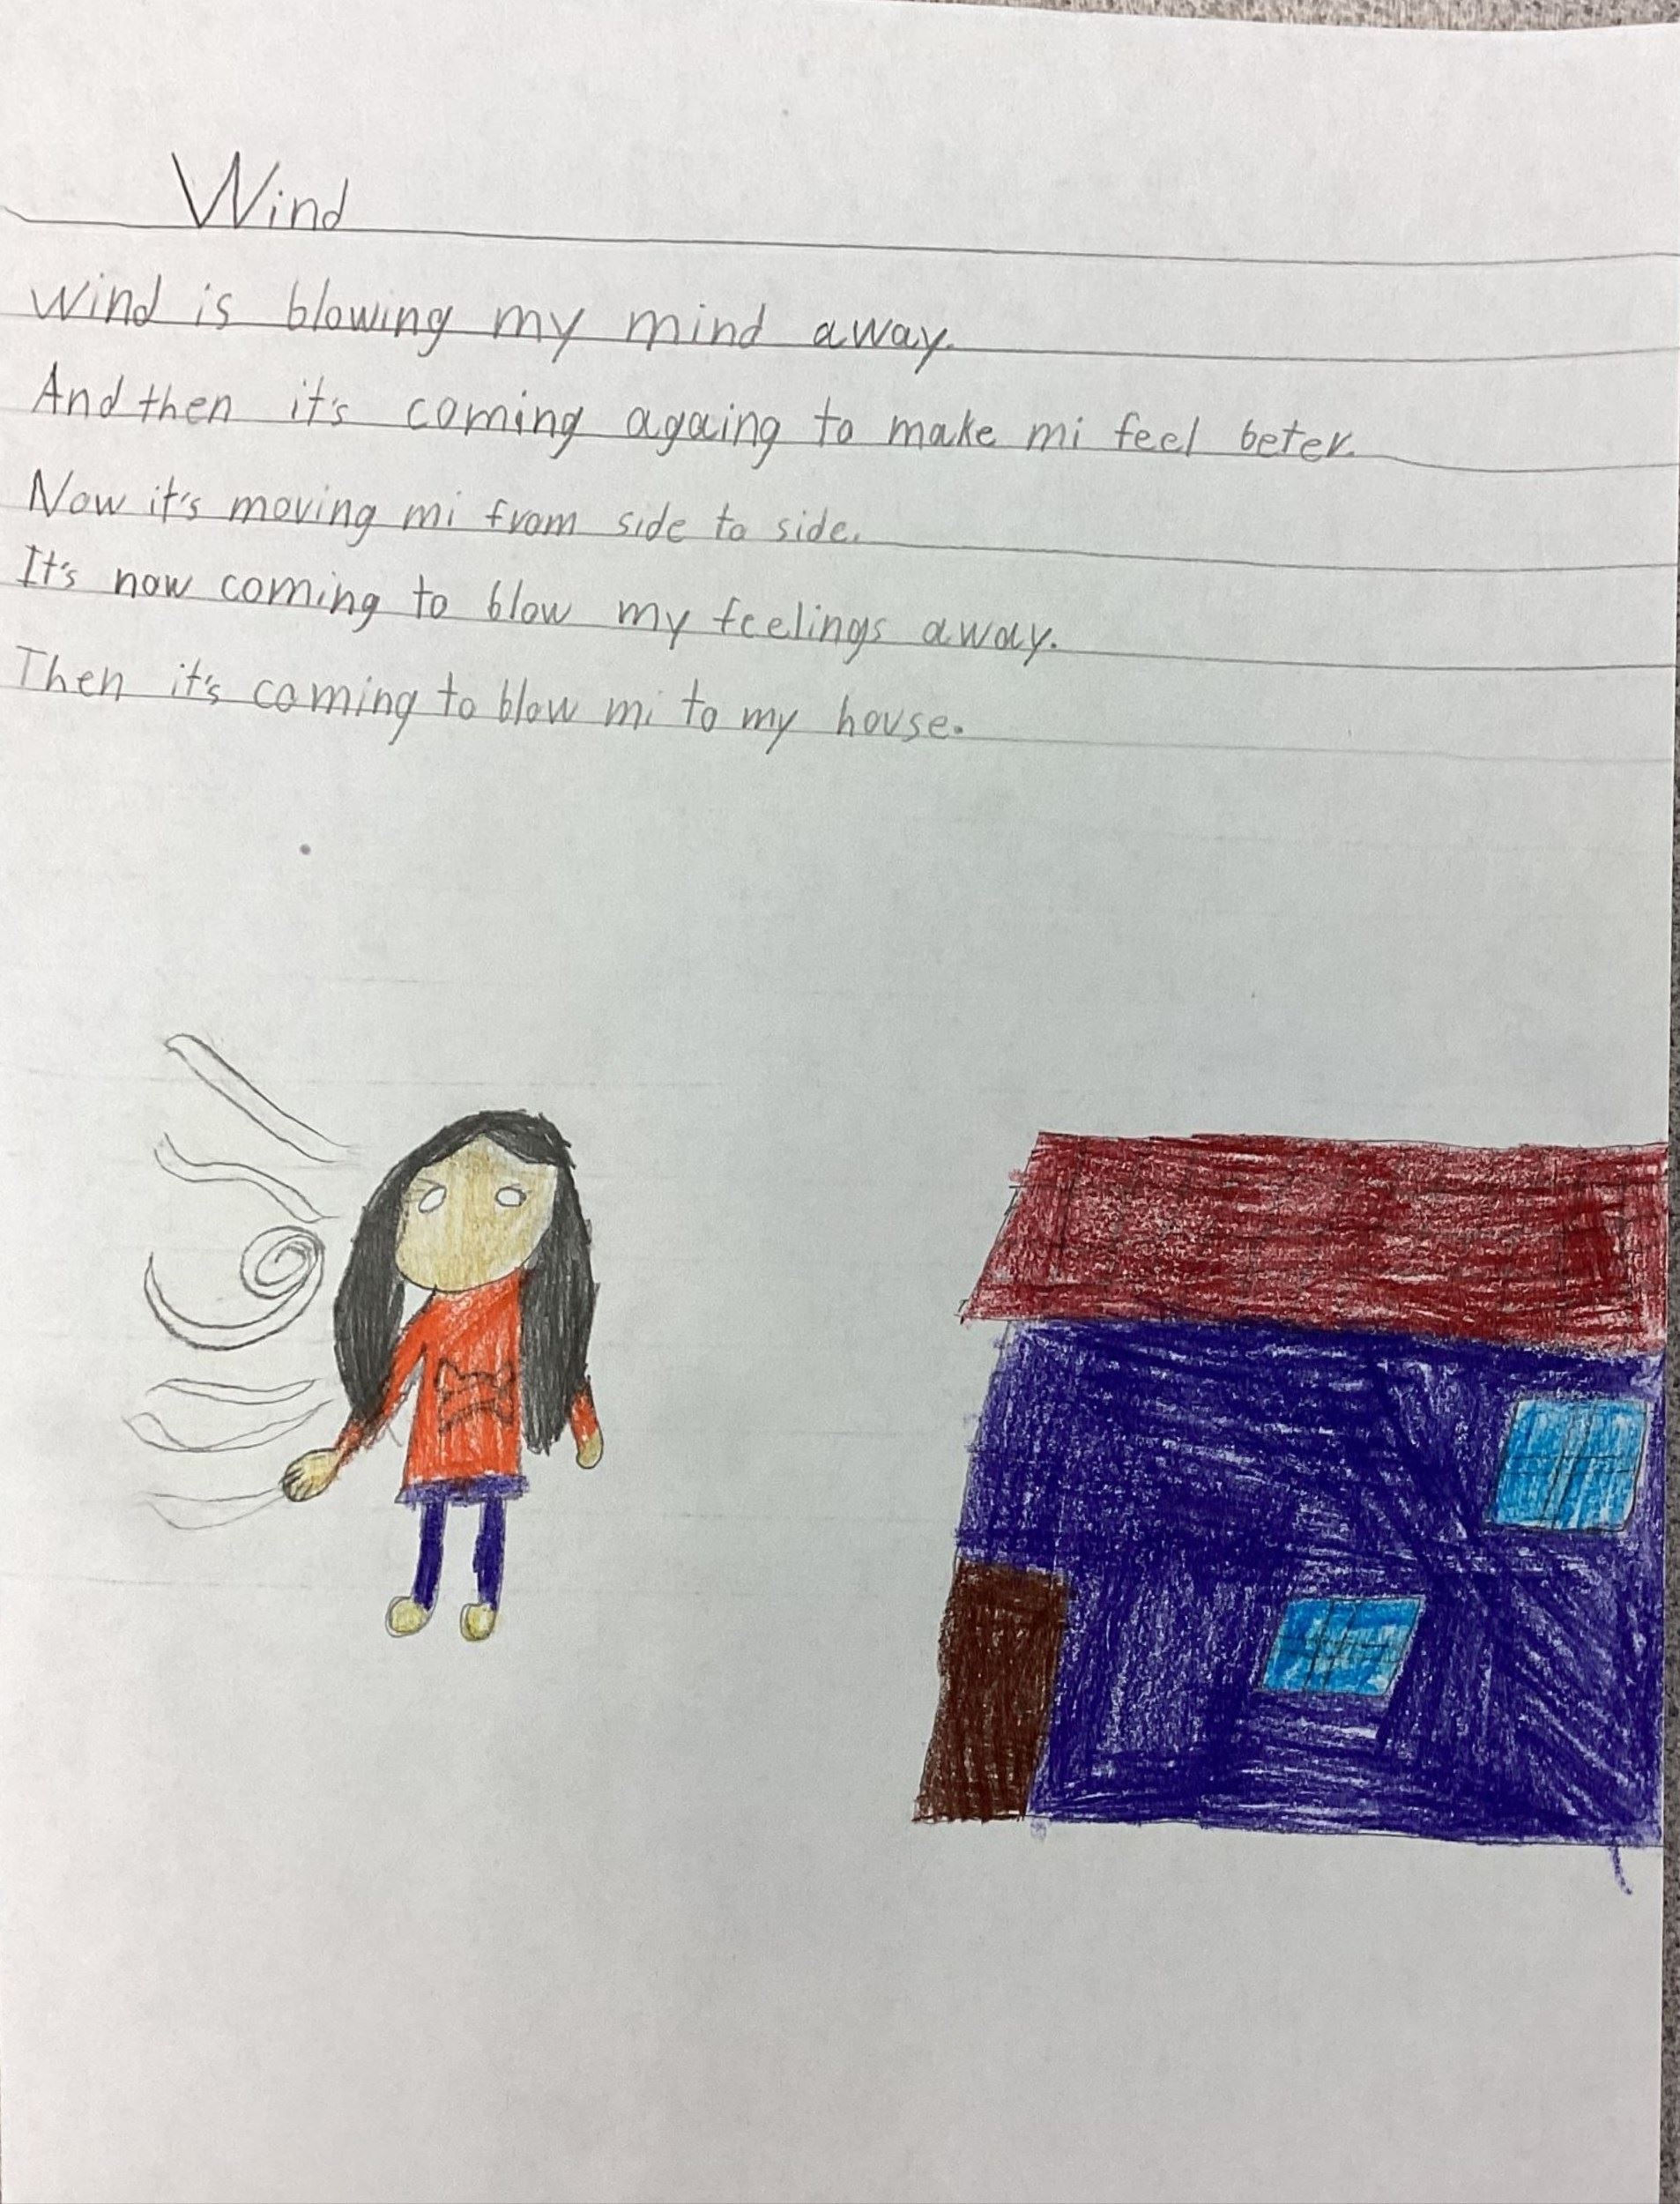 Wind
Wind is blowing my mind away.
And then it's coming againg to make mi feel beter.
Now it's moving mi from side to side.
It's now coming to blow my feelings away.
Then it's coming to blow mi to my house.